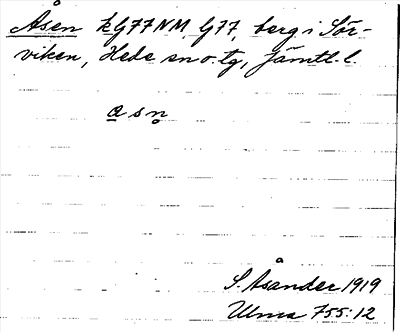 Åsen kG77NM G77, berg i Sör-
viken, Hede sn o. tg, Jämtl. l.
a s n
S. Åsånder 1919
Ulma 755:12